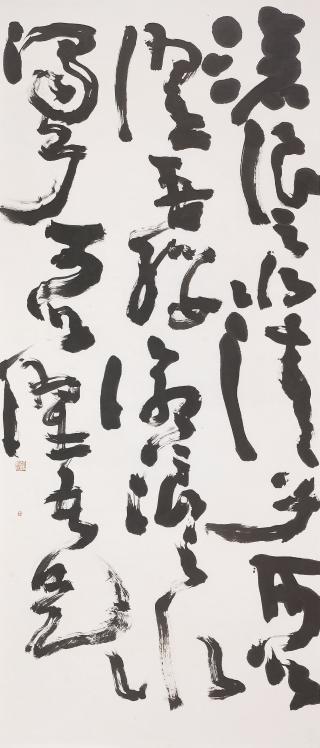 滄浪之水清兮可以
濯吾纓滄浪之水
濁兮可以濯吾足